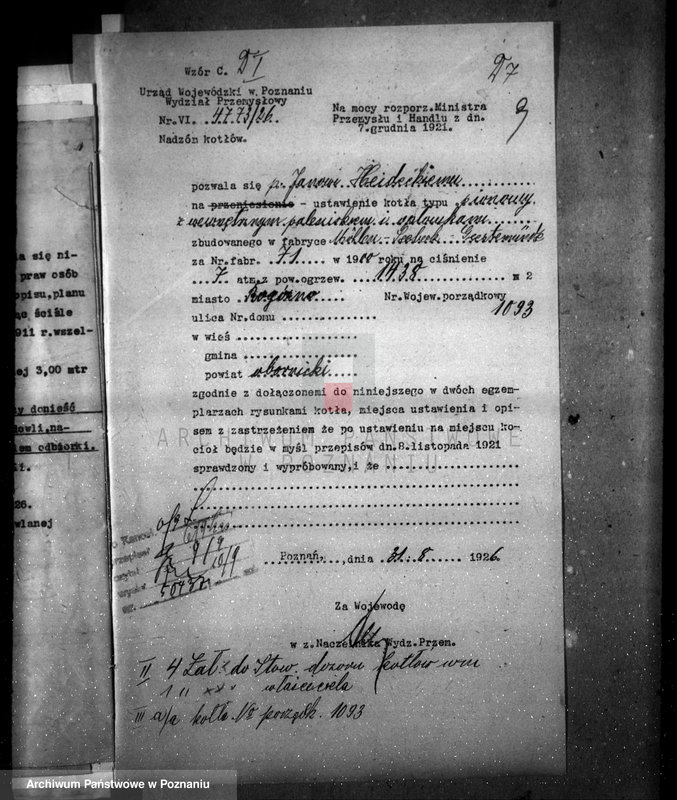 Wzór C. DI
D7
Urząd Wojewódzki w Poznaniu
Wydział Przemysłowy
Nr.VI. 4773/26.
Nadzón kotłów.
Na mocy rozporz.Ministra
Przemysłu i Handlu z dn.
7.grudnia 1921.
9
pozwala się p. Janowi Heideckiemu
na przeniesienie - ustawienie kotła typu pionowy
z wewnętrznym paleniskiem i opłomkami
zbudowanego w fabryce
za Nr.fabr. 71 w 1900 roku na ciśnienie
7. atm.z pow.ogrzew. 14.38 m 2
miasto Rogoźno Nr.Wojew.porządkowy
1093
ulica Nr.domu
w wieś
gmina
powiat obornicki
zgodnie z dołączonemi do niniejszego w dwóch egzem-
plarzach rysunkami kotła, miejsca ustawienia i opi-
sem z zastrzeżeniem że po ustawieniu na miejscu ko-
cioł będzie w myśl przepisów dn.8.listopada 1921
sprawdzony i wypróbowany,i że
Poznań, dnia 31.8 1926.
Za Wojewodę
w z. Naczelnika Wydz.Przem.
II 4 Zał. do Stow. dozoru kotłów
1 " " właściciela
III a/a kotła Nr porządk. 1093
a się ni-
praw osób
opisu,planu
ściśle
911 r.wszel-
ej 3,00 mtr
donieść
dowli,na-
em odbiorki.
26.
wlanej
ARCHIWUM PAŃSTWOWE
W POZNANIU
Archiwum Państwowe w Poznaniu